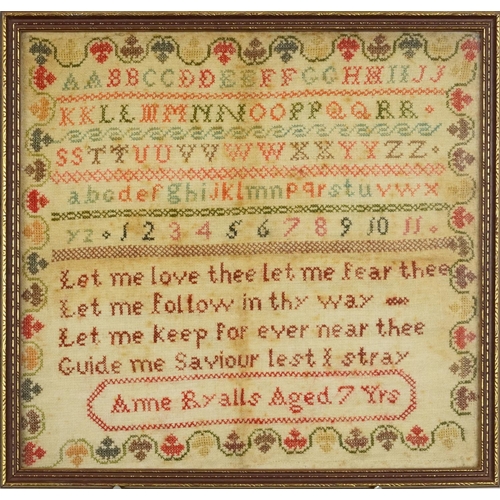 AABBCCDDEEFFGGHHIIJJ
KKLLMMNNOOPPQQRR
SSTTUUVVWWXXYYZZ
abcdefghijklmnpqrstuvwx
yz 1 2 3 4 5 6 7 8 9 10 11
Let me love thee let me fear thee
Let me follow in thy way
Let me keep for ever near thee
Guide me Saviour lest I stray
Anne Ryalls Aged 7 Yrs